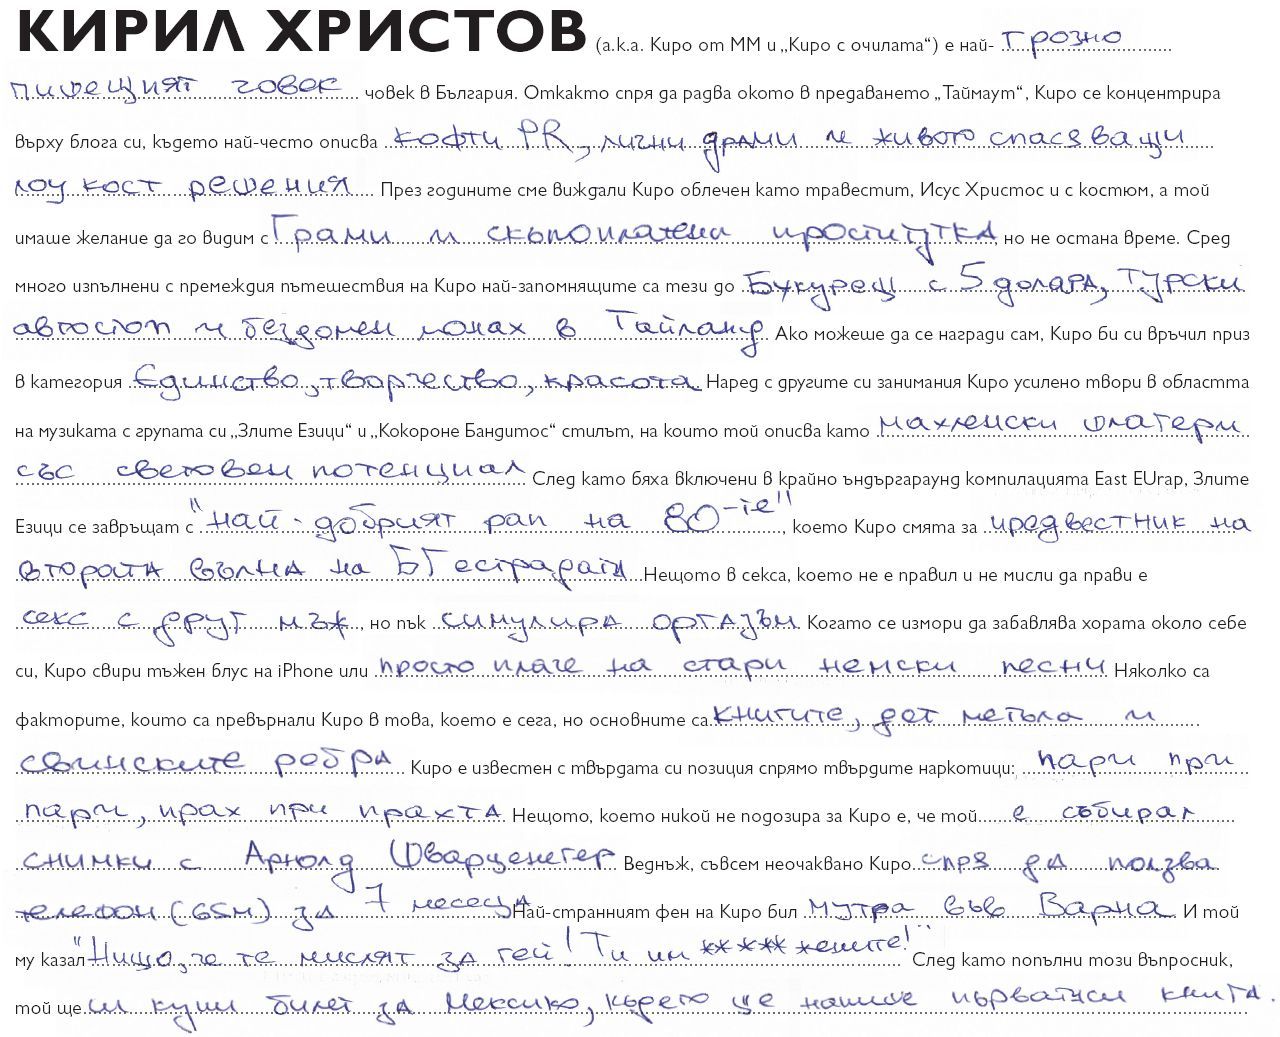 КИРИЛ ХРИСТОВ (a.k.a. Киро от ММ и „Киро с очилата“) е най- грозно
пишещият човек човек в България. Откакто спря да радва окото в предаването „Таймаут“, Киро се концентрира
върху блога си, където най-често описва кофти PR, лични драми и живото спасяващи
лоу кост решения През годините сме виждали Киро облечен като травестит, Исус Христос и с костюм, а той
имаше желание да го видим с Грами и скъпоплатена проститутка, но не остана време. Сред
много изпълнени с премеждия пътешествия на Киро най-запомнящите са тези до Букурещ с 5 долара, турски
автостоп и бездомен монах в Тайланд Ако можеше да се награди сам, Киро би си връчил приз
в категория Единство, творчество, красота Наред с другите си занимания Киро усилено твори в областта
на музиката с групата си „Злите Езици“ и „Кокороне Бандитос“ стилът, на които той описва като махленски шлагери
със световен потенциал След като бяха включени в крайно ъндърграунд компилацията East EUrap, Злите
Езици се завръщат с "най-добрият рап на 80-те", което Киро смята за предвестник на
втората вълна на БГ естрадата Нещото в секса, което не е правил и не мисли да прави е
секс с друг мъж, но пък симулира оргазъм Когато се измори да забавлява хората около себе
си, Киро свири тъжен блус на iPhone или просто плаче на стари немски песни Няколко са
факторите, които са превърнали Киро в това, което е сега, но основните са книгите, дет метъла и
свинските ребра Киро е известен с твърдата си позиция спрямо твърдите наркотици: пари при
пари, прах при прахта Нещото, което никой не подозира за Киро е, че той е събирал
снимки с Арнолд Шварценегер Веднъж, съвсем неочаквано Киро спря да ползва
телефон (GSM) за 7 месеца Най-странният фен на Киро бил мутра във Варна И той
му казал "Нищо, че те мислят за гей! Ти им ***** жените!" След като попълни този въпросник,
той ще си купи билет за Мексико, където ще напише първата си книга.